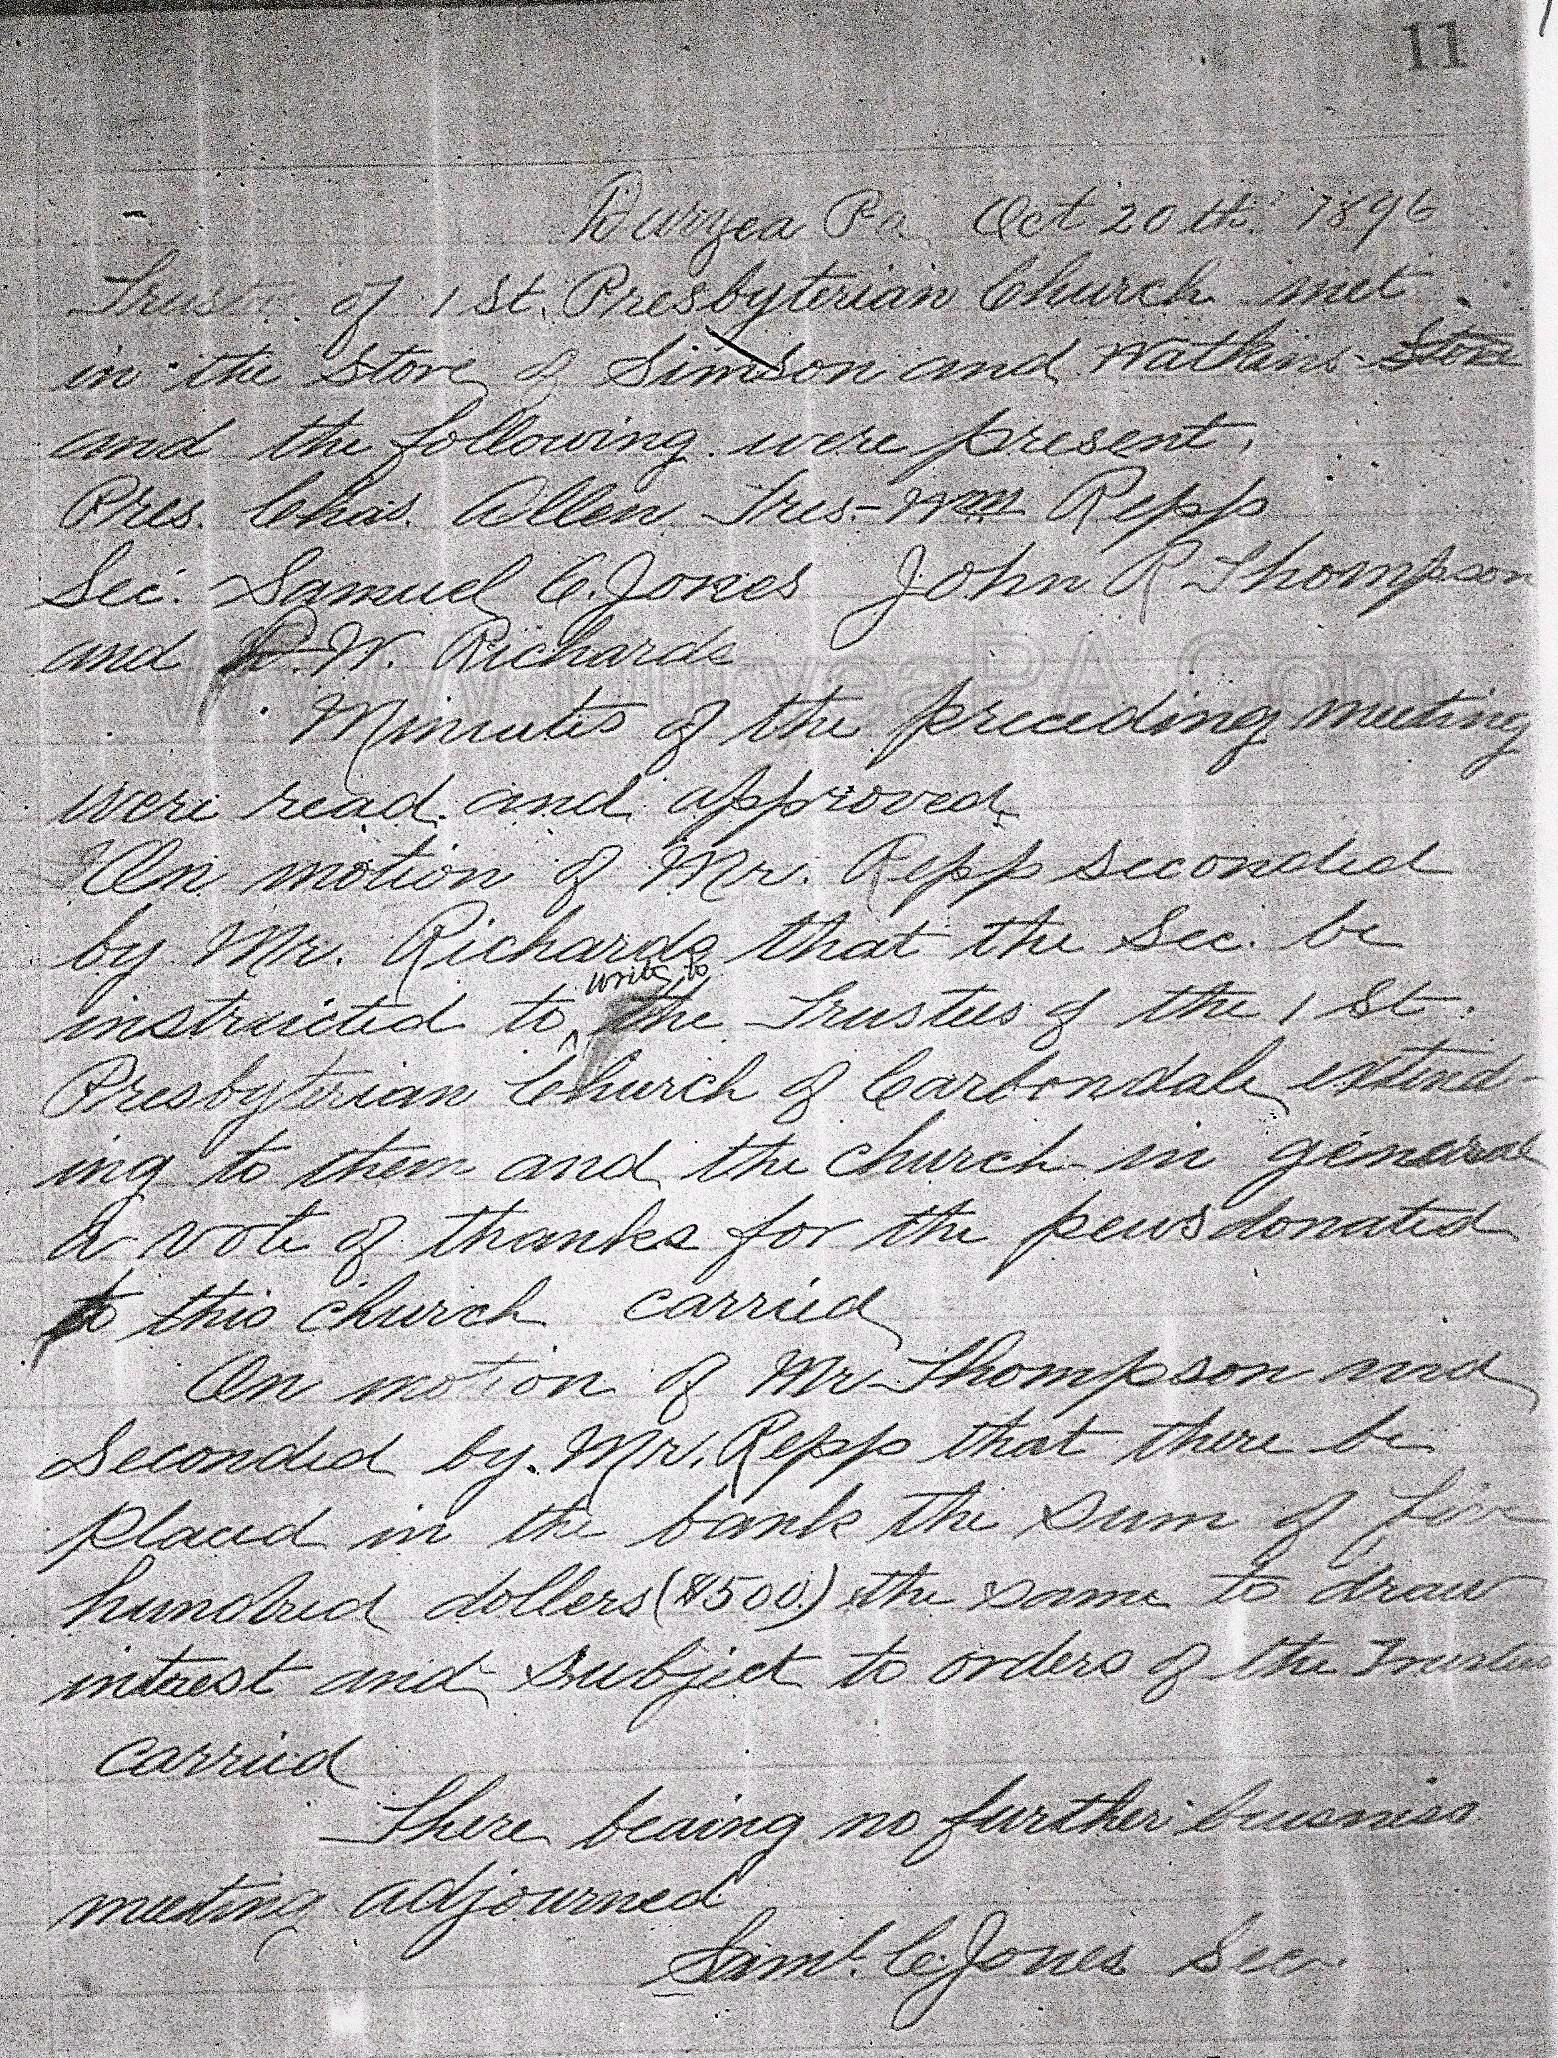 11
Duryea Pa. Oct 20th. 1896
Trustees of 1st. Presbyterian Church met
in the store of Simson and Watkins Store
and the following were present,
Pres. Chas. Allen Tres.- Wm Repp
Sec. Samuel C. Jones John R Thompson
and W. Richards
www.DuryeaPA.Com
Minutes of the preceding meeting
were read and approved
On motion of Mr. Repp seconded
by Mr. Richards that the Sec. be
write to
instructed to ^ the Trustees of the 1st.
Presbyterian Church of Carbondale extend-
ing to them and the church in general
a vote of thanks for the pews donated
to this church carried
On motion of Mr Thompson and
seconded by Mr. Repp that there be
placed in the bank the sum of five
hundred dollers ($500.) the same to draw
interest and subject to orders of the Trustees
carried
There beaing no further buisness
meeting adjourned
Saml. C. Jones Sec.